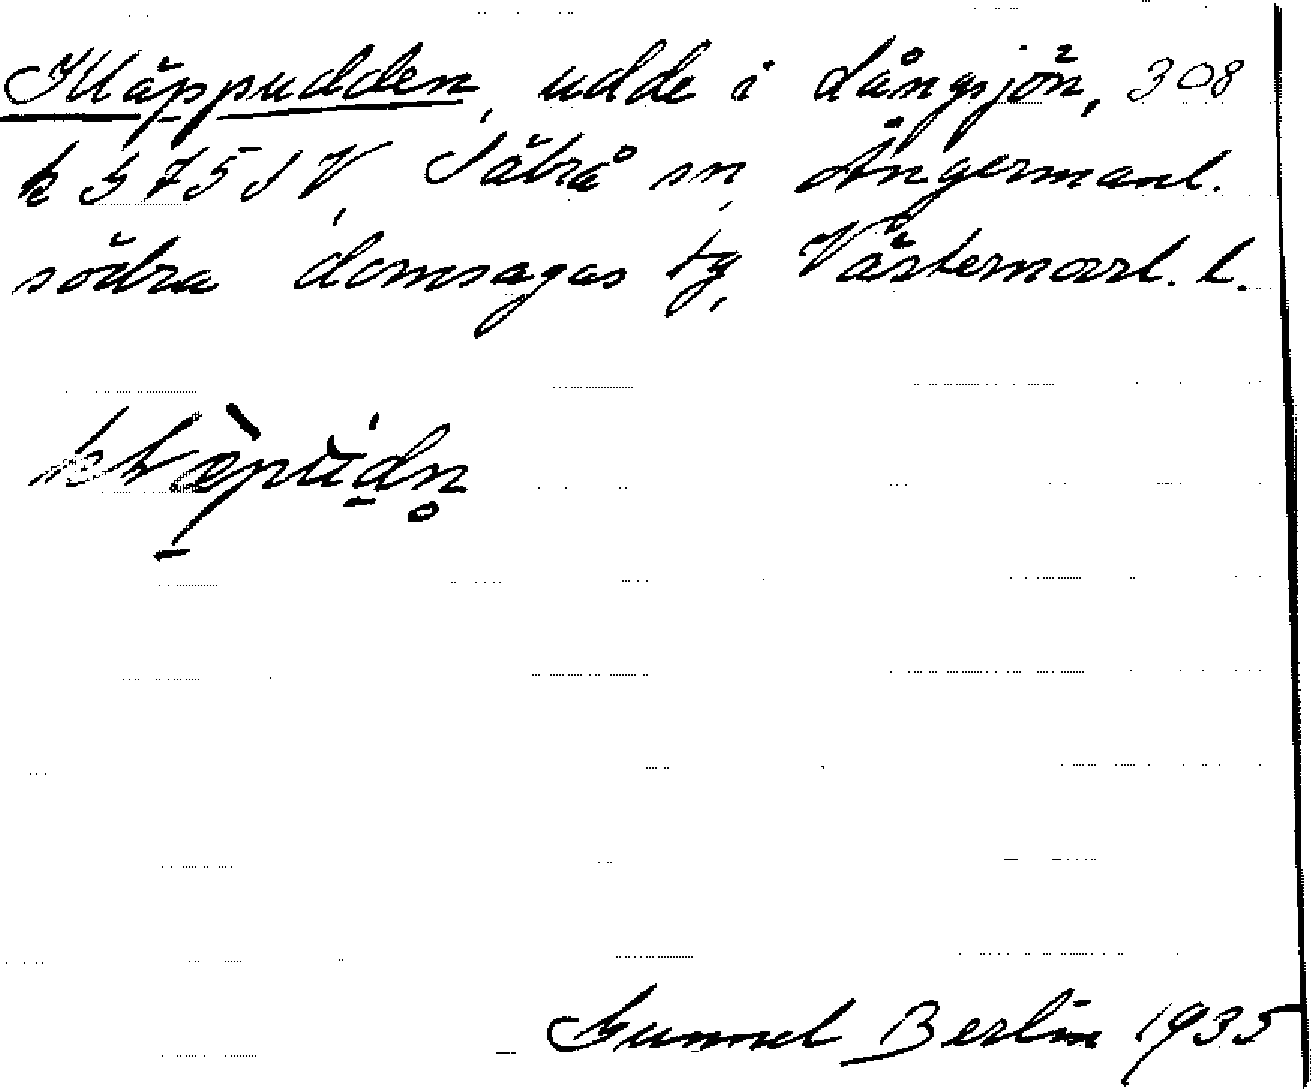 Kläppudden, udde i Långsjön, 308
k 375 IV, Säbrå sn, Ångermanl.
södra domsagas tg, Västernorrl. l.
Gunnel Berlin 1935